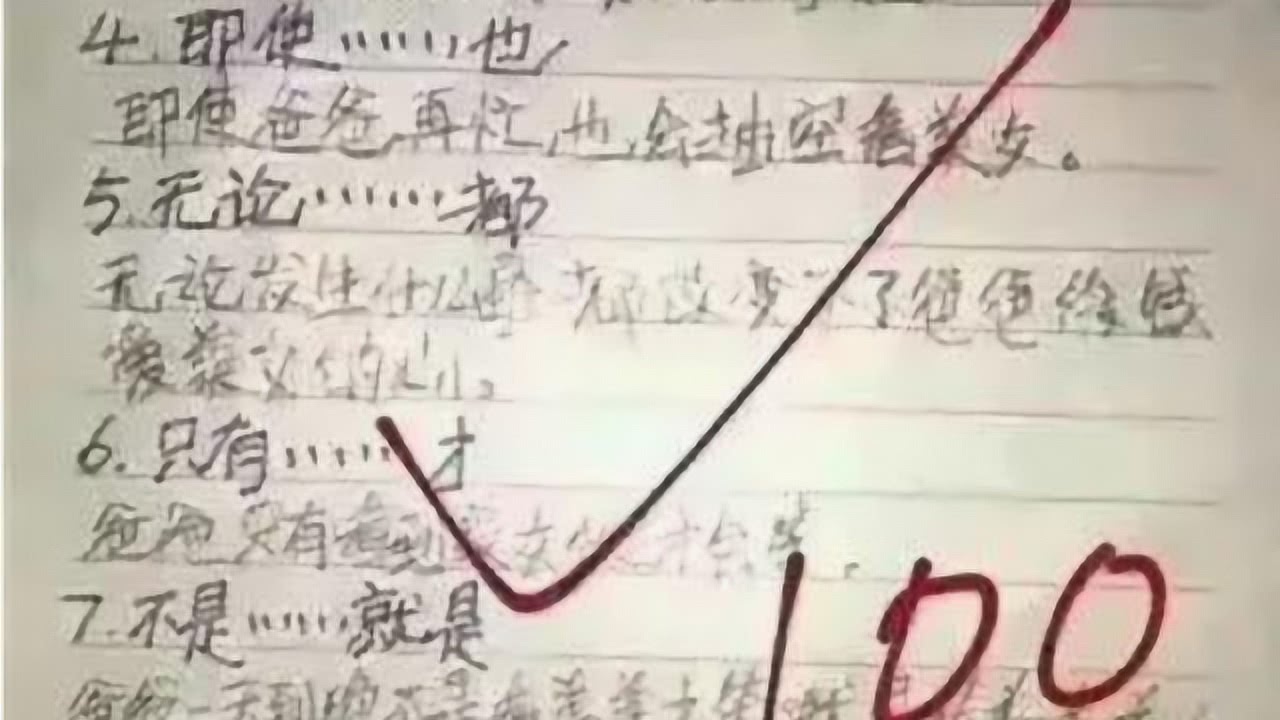 4.即使……也
即使爸爸再忙,也会抽空看美女。
5.无论……都
无论发生什么事 都改变不了爸爸
爱美女的心。
6.只有……才
爸爸只有看到美女 才会笑.
7.不是……就是
爸爸一天到晚不是看美女 就是
100